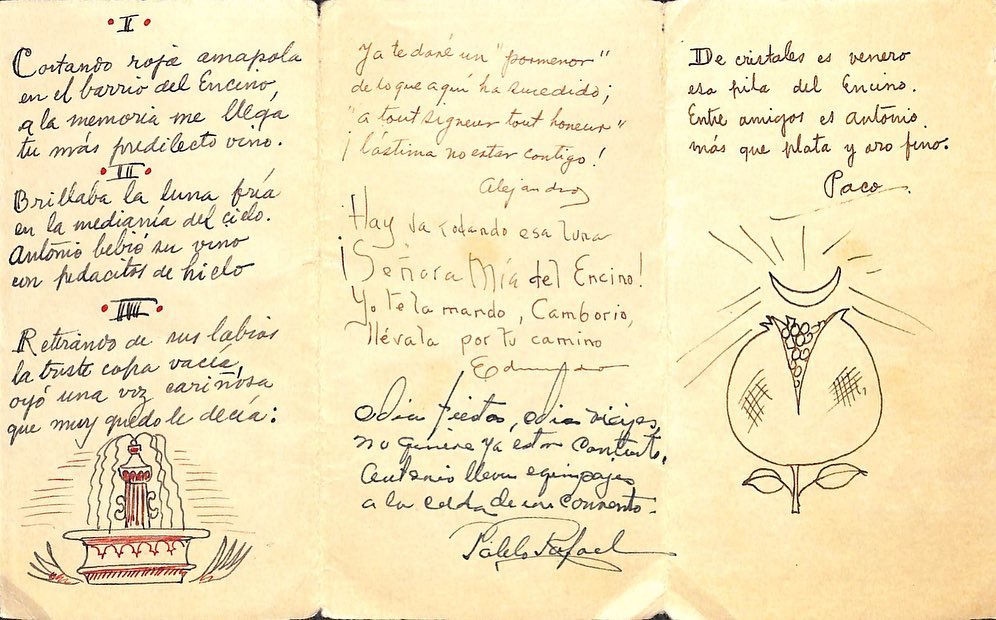 II
Cortando roja amapola
en el barrio del Encino,
a la memoria me llega
tu más predilecto vino.
III
Brillaba la luna fría
en la medianía del cielo.
Antonio bebió su vino
con pedacitos de hielo
IIII
Retirando de sus labios
la triste copa vacía,
oyó una voz cariñosa
que muy quedo le decía:
Ya te daré un "pormenor"
de lo que aquí ha sucedido;
"a tout signeur tout honeur"
¡lástima no estar contigo!
Alejandro
Hay va rodando esa luna
¡Señora Mía del Encino!
Yo te la mando, Camborio,
llévala por tu camino
Eduardo
odia fiestas, odia viajes,
no quiere ya estar contento,
Antonio lleva equipajes
a la celda de un convento.
Pablo Rafael
De cristales es venero
esa pila del Encino.
Entre amigos es Antonio
más que plata y oro fino.
Paco